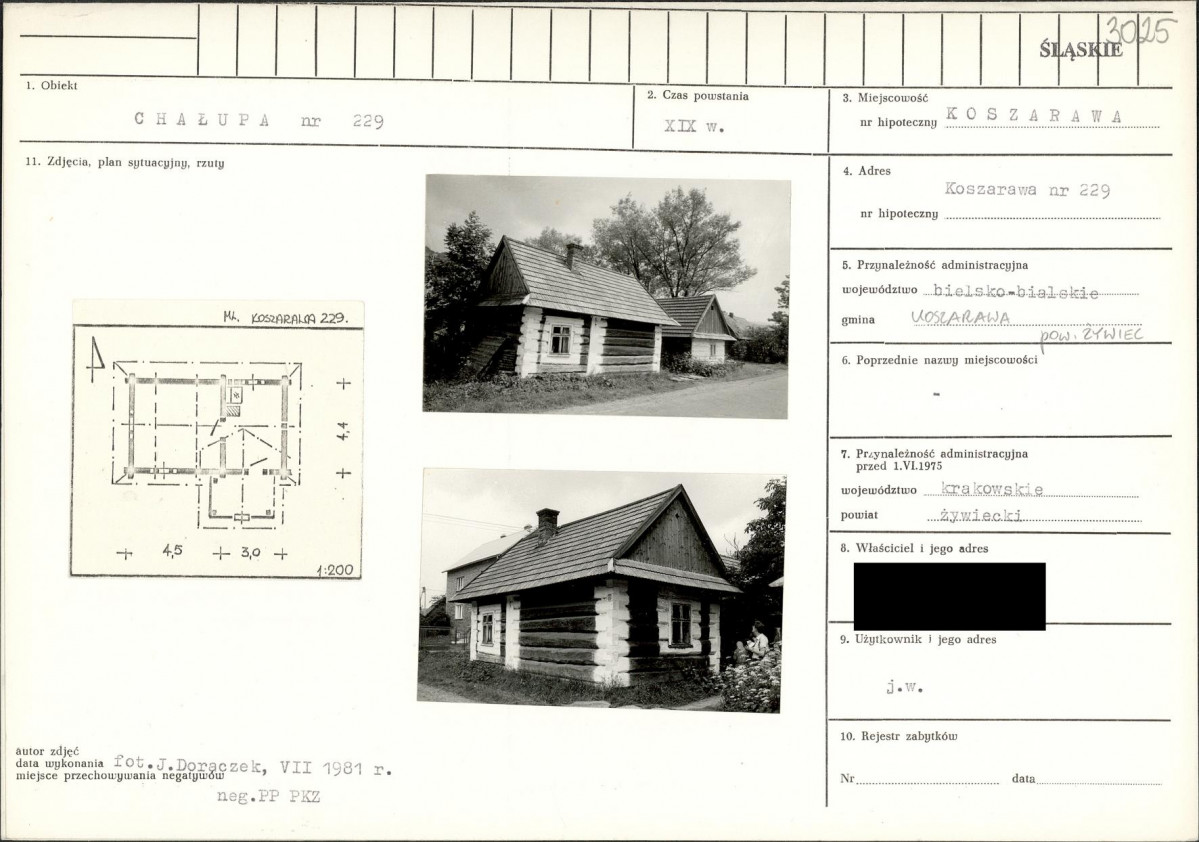 3025
ŚLĄSKIE
1. Obiekt
CHAŁUPA nr 229
2. Czas powstania
XIX w.
3. Miejscowość
nr hipoteczny KOSZARAWA
4. Adres
Koszarawa nr 229
nr hipoteczny
5. Przynależność administracyjna
województwo bielsko-bialskie
gmina KOSZARAWA
pow. ŻYWIEC
6. Poprzednie nazwy miejscowości
-
7. Przynależność administracyjna
przed 1.VI.1975
województwo krakowskie
powiat żywiecki
8. Właściciel i jego adres
9. Użytkownik i jego adres
j.w.
10. Rejestr zabytków
Nr data
11. Zdjęcia, plan sytuacyjny, rzuty
KOSZARAWA 229.
4,4
4,5 3,0
1:200
autor zdjęć
data wykonania fot.J.Dorączek, VII 1981 r.
miejsce przechowywania negatywów
neg.PP PKZ